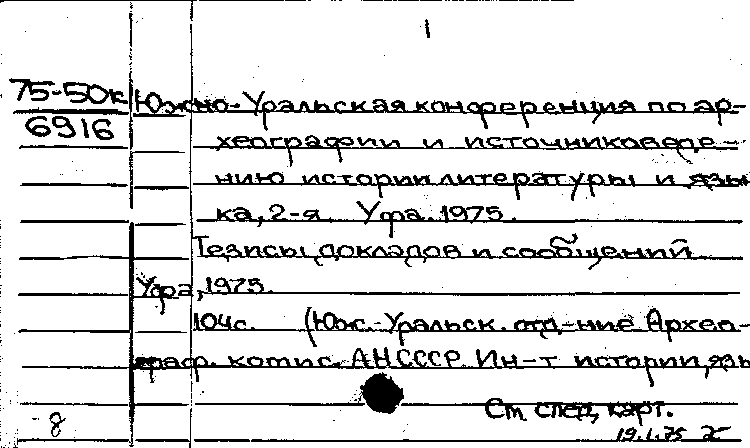 1
75-50к Южно-Уральская конференция по ар-
6916 хеографии и источниковеде-
нию истории литературы и язы
ка, 2-я. Уфа. 1975.
Тезисы докладов и сообщений
Уфа, 1975.
104с. (Юж.-Уральск. отд-ние Архео-
граф. комис. АНСССР. Ин-т истории, язы
См. спец. карт.
8 19.1.75